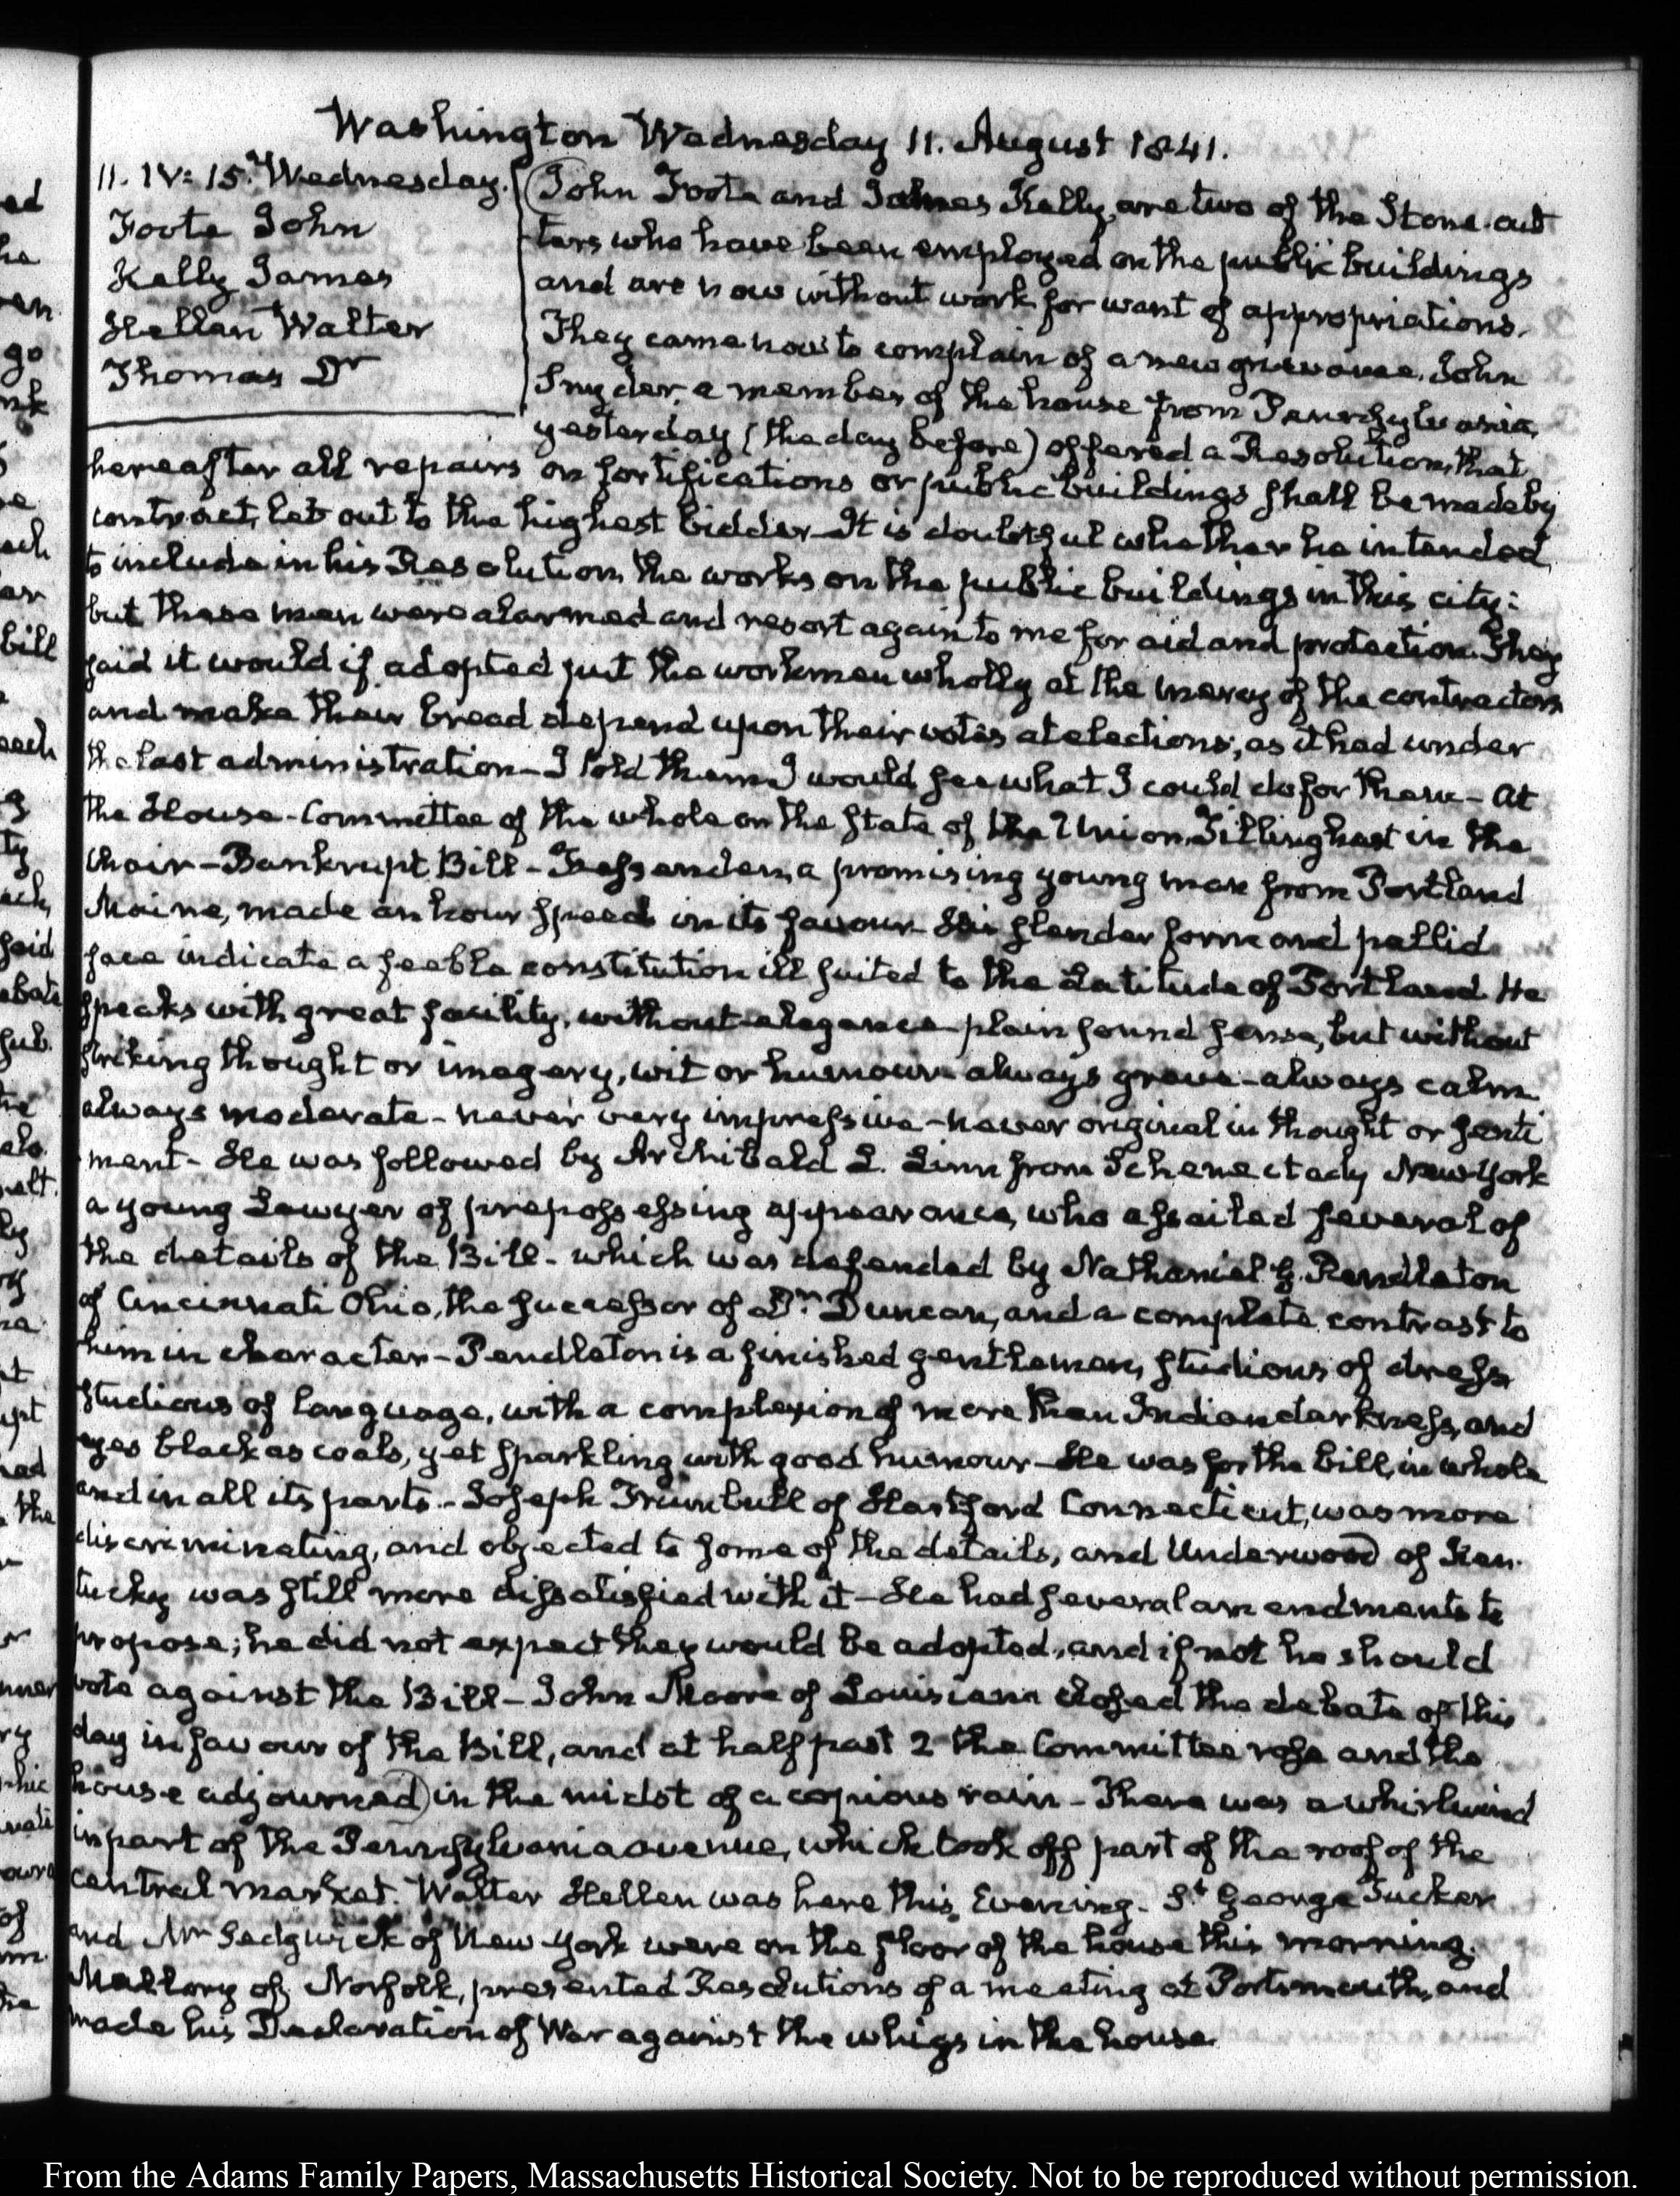 Washington Wednesday 11. August 1841.
11. IV: 15. Wednesday.
Foote John
Kelly James
Hellen Walter
Thomas Dr
John Foote and James Kelly, are two of the Stone-cut
ters who have been employed on the public buildings
and are now without work for want of appropriations.
They came now to complain of a new grievance. John
Snyder, a member of the house from Pennsylvania,
yesterday (the day before) offered a Resolution, that
hereafter all repairs on fortifications or public buildings shall be made by
contract, let out to the highest bidder— It is doubtful whether he intended
to include in his Resolution, the works on the public buildings in this city:
but these men were alarmed and resort again to me for aid and protection. They
said it would if adopted put the workmen wholly at the mercy of the contractors
and make their bread depend upon their votes at elections; as it had under
the last administration— I told them I would see what I could do for them— At
the House— Committee of the whole on the state of the Union. Tillinghast in the
Chair— Bankrupt Bill— Fessenden, a promising young man from Portland
Maine, made an hour speech in its favour— His slender form and pallid
face indicate a feeble constitution ill suited to the Latitude of Portland. He
speaks with great facility, without elegance— plain sound sense, but without
striking thought or imagery, wit or humour— always grave— always calm
always moderate— never very impressive— never original in thought or senti
ment— He was followed by Archibald L. Linn from Schenectady New York
a young Lawyer of prepossessing appearance, who assailed several of
the details of the Bill— which was defended by Nathaniel G. Pendleton
of Cincinnati Ohio, the successor of Dr. Duncan, and a complete contrast to
him in character— Pendleton is a finished gentleman, studious of dress
studious of language, with a complexion of more than Indian darkness, and
eyes black as coals, yet sparkling with good humour— He was for the bill, in whole
and in all its parts— Joseph Trumbull of Hartford Connecticut, was more
discriminating, and objected to some of the details, and Underwood of Ken-
tucky was still more dissatisfied with it— He had several amendments to
propose; he did not expect they would be adopted, and if not he should
vote against the Bill— John Moore of Louisiana closed the debate of this
day in favour of the Bill, and at half past 2 the Committee rose and the
house adjourned) in the midst of a copious rain— There was a whirlwind
in part of the Pennsylvania avenue, which took off part of the roof of the
central market. Walter Hellen was here this Evening. St. George Tucker
and Mr Sedgwick of New-York were on the floor of the house this morning.
Mallory of Norfolk, presented Resolutions of a meeting at Portsmouth, and
made his Declaration of War against the whigs in the house.
From the Adams Family Papers, Massachusetts Historical Society. Not to be reproduced without permission.